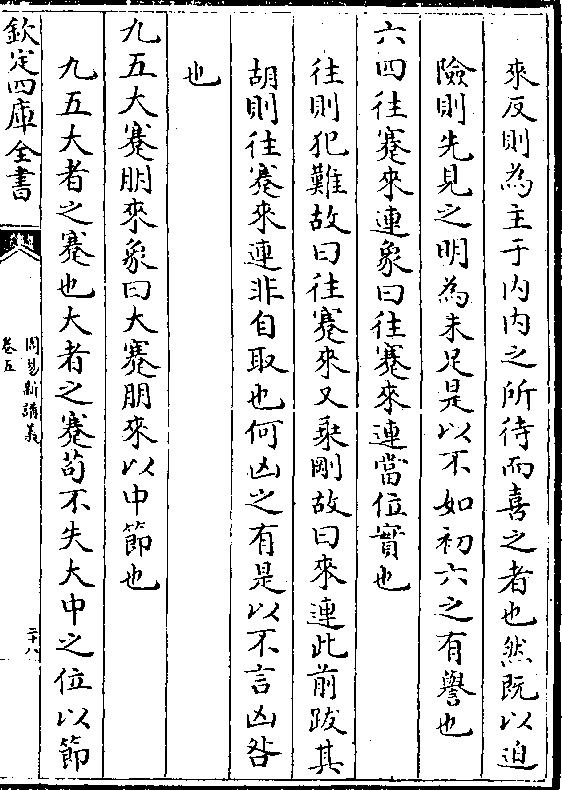 來反則為主于内内之所待而喜之者也然既以迫
險則先見之明為未足是以不如初六之有譽也
六四往蹇來連象曰往蹇來連當位實也
往則犯難故曰往蹇來又乘剛故曰來連此前跋其
胡則往蹇來連非自取也何凶之有是以不言凶咎
也
九五大蹇朋來象曰大蹇朋來以中節也
九五大者之蹇也大者之蹇苟不失大中之位以節
欽定四庫全書
周易新講義
卷五
二十八